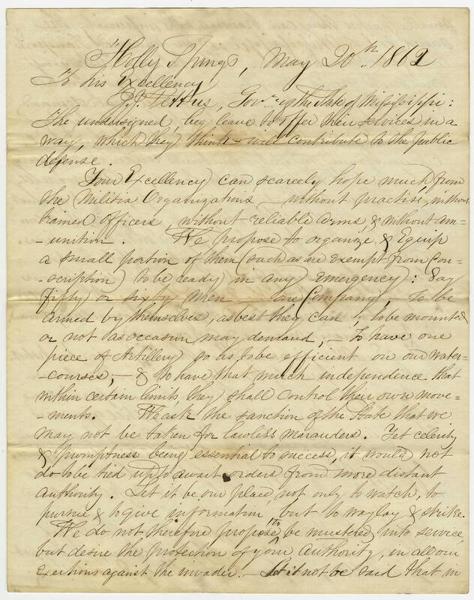 Holly Springs, May 20th 1862
To his Excellency
J. J. Pettus, Gov. of the State of Mississippi:
The undersigned, beg leave to offer their services in a
way, which they think will contribute to the public
defense.
Your Excellency can scarcely hope much from
the Militia Organizations, without practise, without
trained Officers, without reliable arms, & without am-
-unition. We propose to organize, & Equip
a small portion of them (such as are exempt from Con-
-scription) to be ready in any emergency: Say
fifty or sixty men - one Company, to be
armed by themselves, as best they can; to be mounted
or not as occasion may demand; - to have one
piece of Artillery so as to be efficient on our water-
-courses; - & to have that much independence that
within certain limits, they shall control their own move-
-ments. We ask the sanction of the State that we
may not be taken for lawless marauders. Yet celerity
& promptness being essential to success, it would not
do to be tied up to await orders from more distant
authority. Let it be our place not only to watch, to
pursue & to give information, but to waylay & strike.
We do not therefore propose to be mustered into service,
but desire the protection of your authority, in all our
exertions against the invader. Let it not be said that in